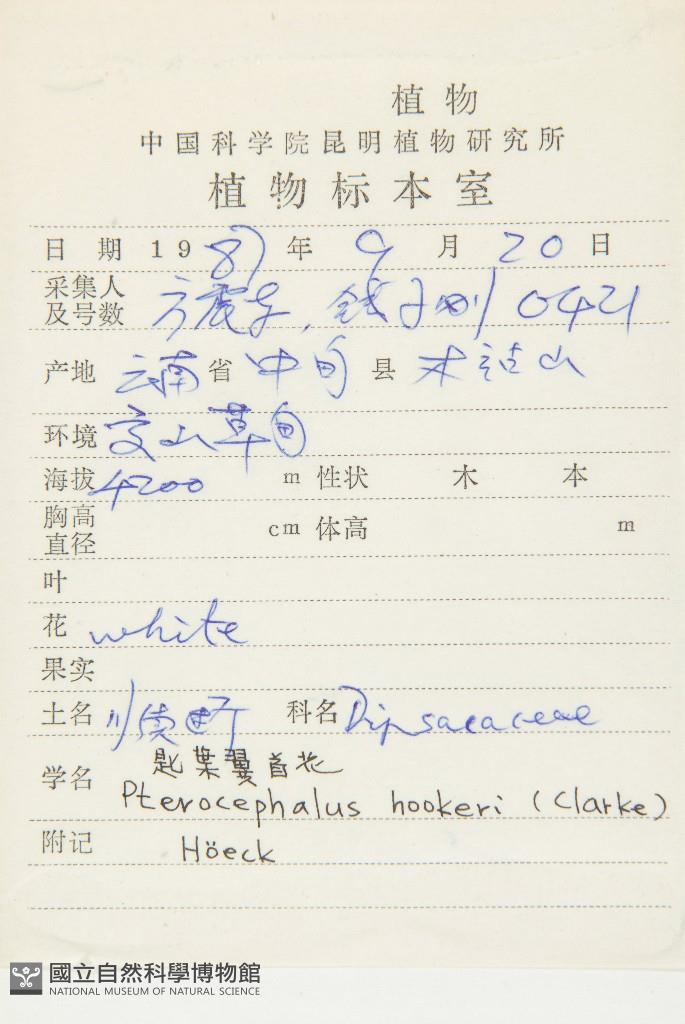 植物
中国科学院昆明植物研究所
植物标本室
日期 1987年 9月 20日
采集人
及号数 方震东, 钱子刚 0421
产地 云南省 中甸县 木 山
环境 高山草甸
海拔 4200 m 性状 木 本
胸高
直径 cm 体高 m
叶
花 white
果实
土名 科名 Dipsacaceae
学名 匙葉翼首花
Pterocephalus hookeri (Clarke)
附记 Höeck
國立自然科學博物館
NATIONAL MUSEUM OF NATURAL SCIENCE